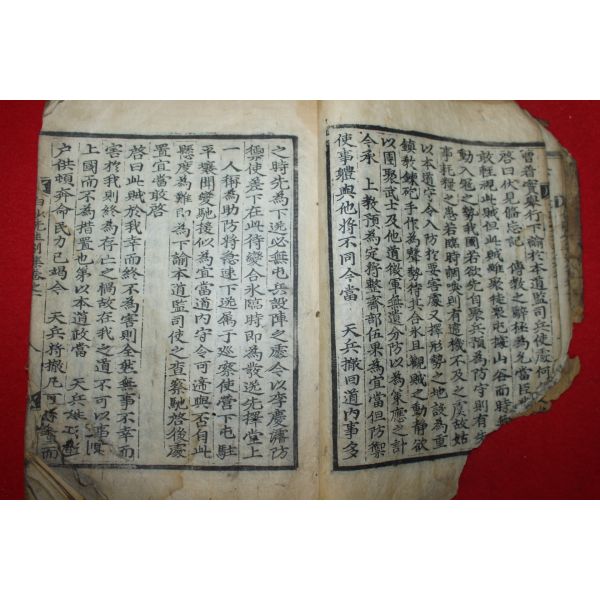 曾着處擧行下諭於本道監司兵使處何
啓曰伏見備忘記 傳敎之辭極為允當臣
敢輕視此賊但此賊雖聚徒累屯據山谷而時無
動入冠之勢我國若欲先自聚兵預為防守則有先
事耗糧之患若臨時調喚則有遺機不及之虞故姑
以本道守令入防於要害處又擇形勢之地設為重
鎮放銃砲手作為聲勢待其合氷且觀賊之動静欲
以團聚武士及他道後軍無遺分防以為策應之計
今承 上敎預為定將整齊部伍果為宜當但防禦
使事體與他將不同今當 天兵撤回道內事多
之時先為下送必無屯兵設陣之處令以李慶濬防
禦使差下在此待變合氷臨時即為發送先擇堂上
一人稱為助防將急速下送屬于巡察使營下屯駐
平壤聞變馳援似為宜當道內守令可適與否自此
懸度為難即為下諭本道監司使之查察馳啓後處
置宜當敢啓
啓曰此賊於我幸而終不為害則全然無事不幸而
害於我則終為存亡之禍故在我之道不可以事
上國而不為措置也第以本道政當 天兵
户供頓奔命民力已竭今 天兵將撤尾可